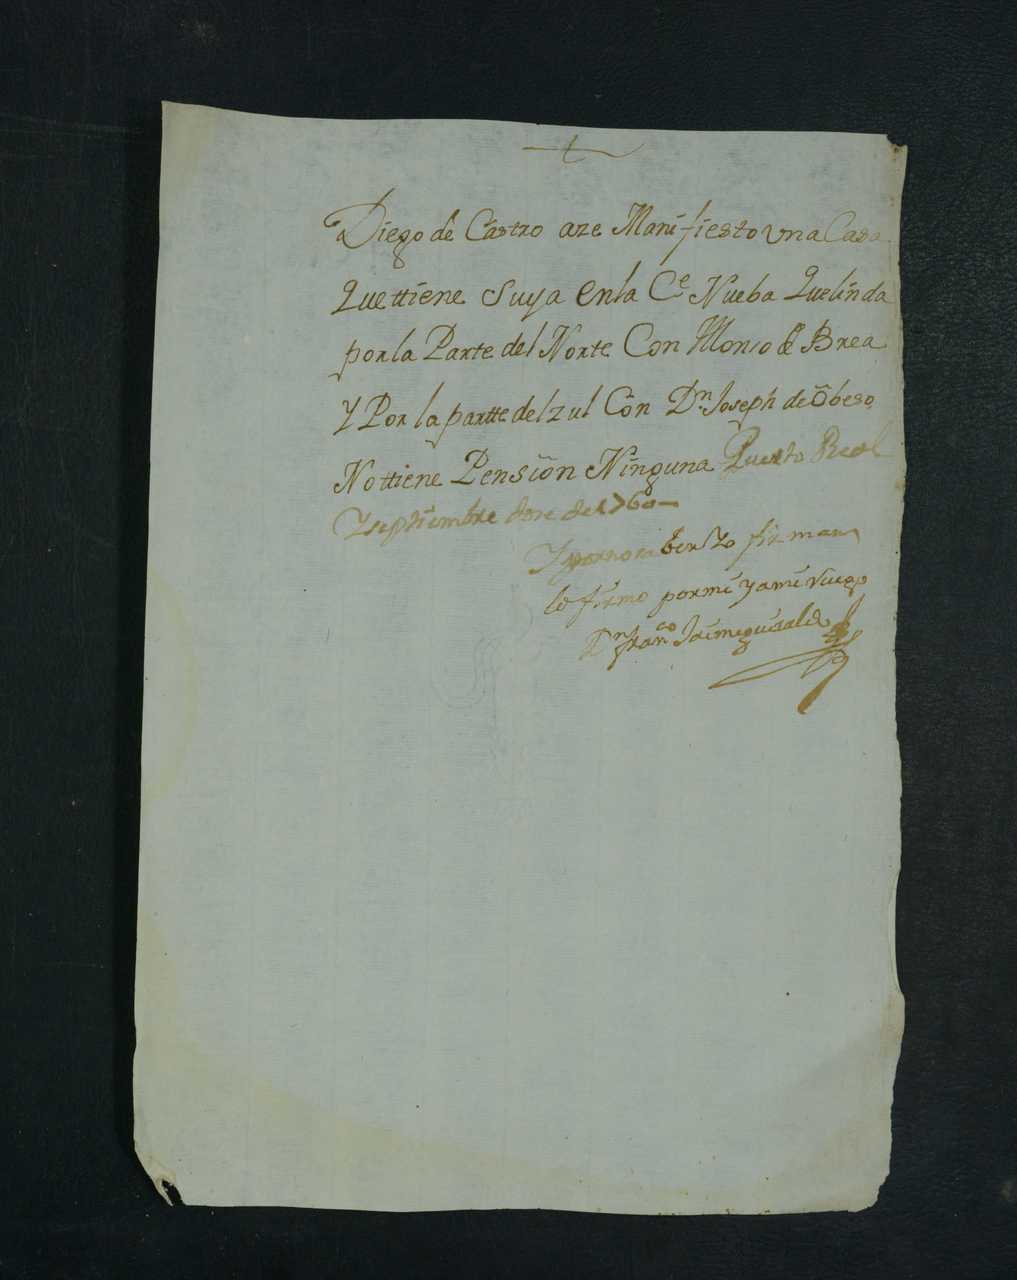 Diego de Castro aze Manifiesto una Casa
Que ttiene Suya en la Ce Nueba Que linda
por la Parte del Norte Con Alonso de Brea
Y Por la partte del zul Con Dn Joseph de Obeso
No ttiene Pension Ninguna Puerto Real
Y septiembre dose de 1760
Y por no saber Yo firmar
lo firmo por mi y a mi ruego
Dn Franco Jaime